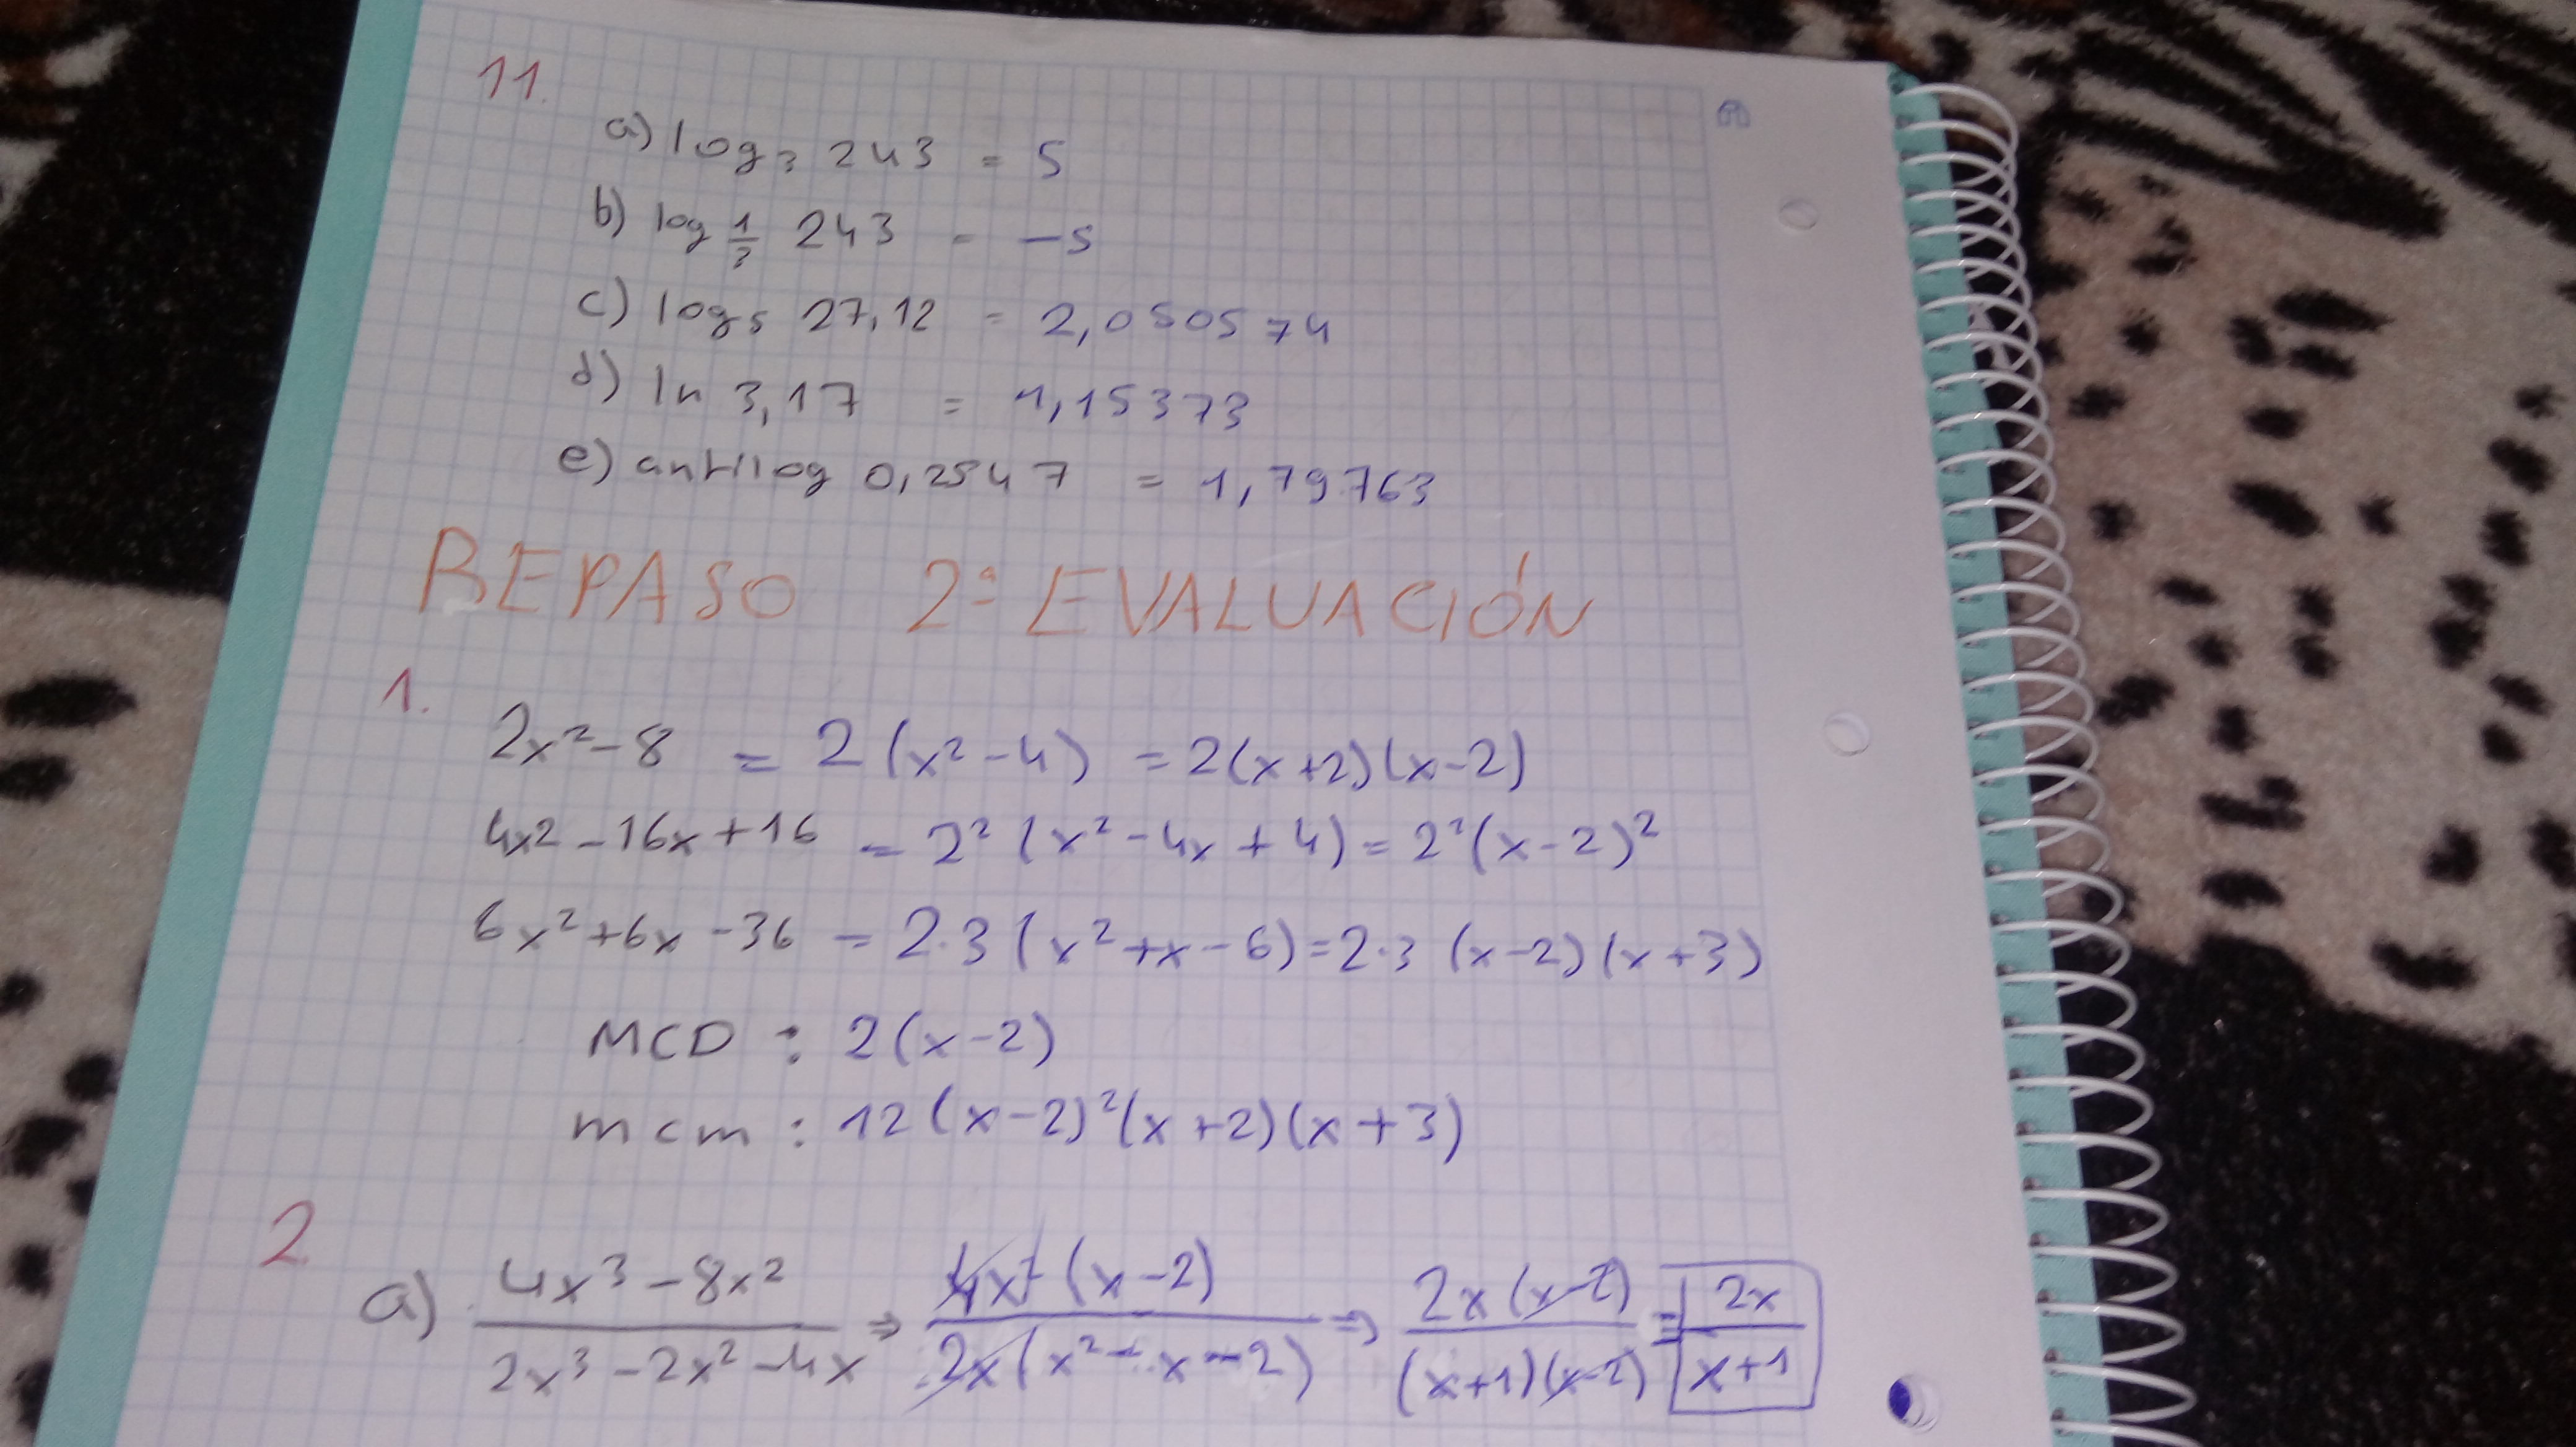 11.
a) log₃ 243 = 5
b) log 1/3 243 = -5
c) log₅ 27,12 = 2,050574
d) ln 3,17 = 1,15373
e) antilog 0,2547 = 1,79763
REPASO 2ª EVALUACIÓN
1.
2x² - 8 = 2(x² - 4) = 2(x+2)(x-2)
4x² - 16x + 16 = 2² (x² - 4x + 4) = 2² (x - 2)²
6x² + 6x - 36 = 2·3 (x² + x - 6) = 2·3 (x-2)(x+3)
MCD : 2(x-2)
mcm : 12(x-2)²(x+2)(x+3)
2
a) 4x³ - 8x² ⇒ 4x² (x-2) ⇒ 2x(x-2) = 2x
2x³ - 2x² - 4x 2x(x² - x - 2) (x+1)(x-2) x+1